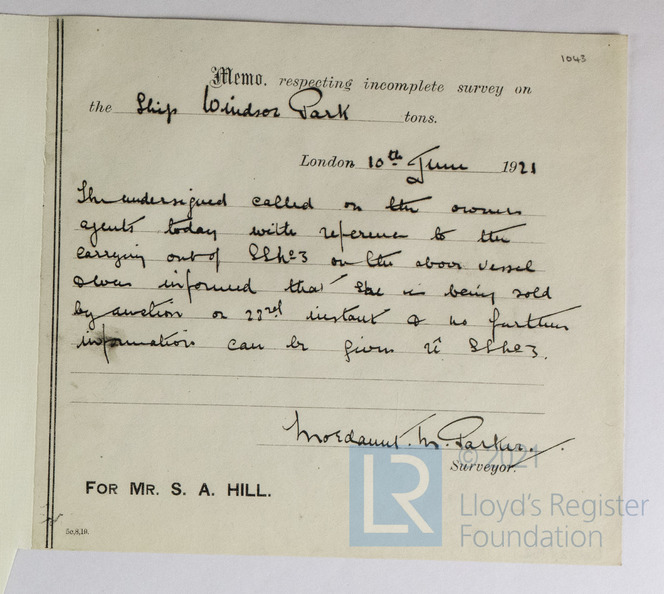 1043
Memo. respecting incomplete survey on
the Ship Windsor Park tons.
London 10th June 1921
The undersigned called on the owners
agents today with reference to the
carrying out of SSNo3 on the above vessel
& was informed that she is being sold
by auction on 22nd instant & no further
information can be given re SSNo3.
Mordaunt. M. Parker.
Surveyor.
© 2021
FOR MR. S. A. HILL.
LR
Lloyd's Register
Foundation
5c,8,19.